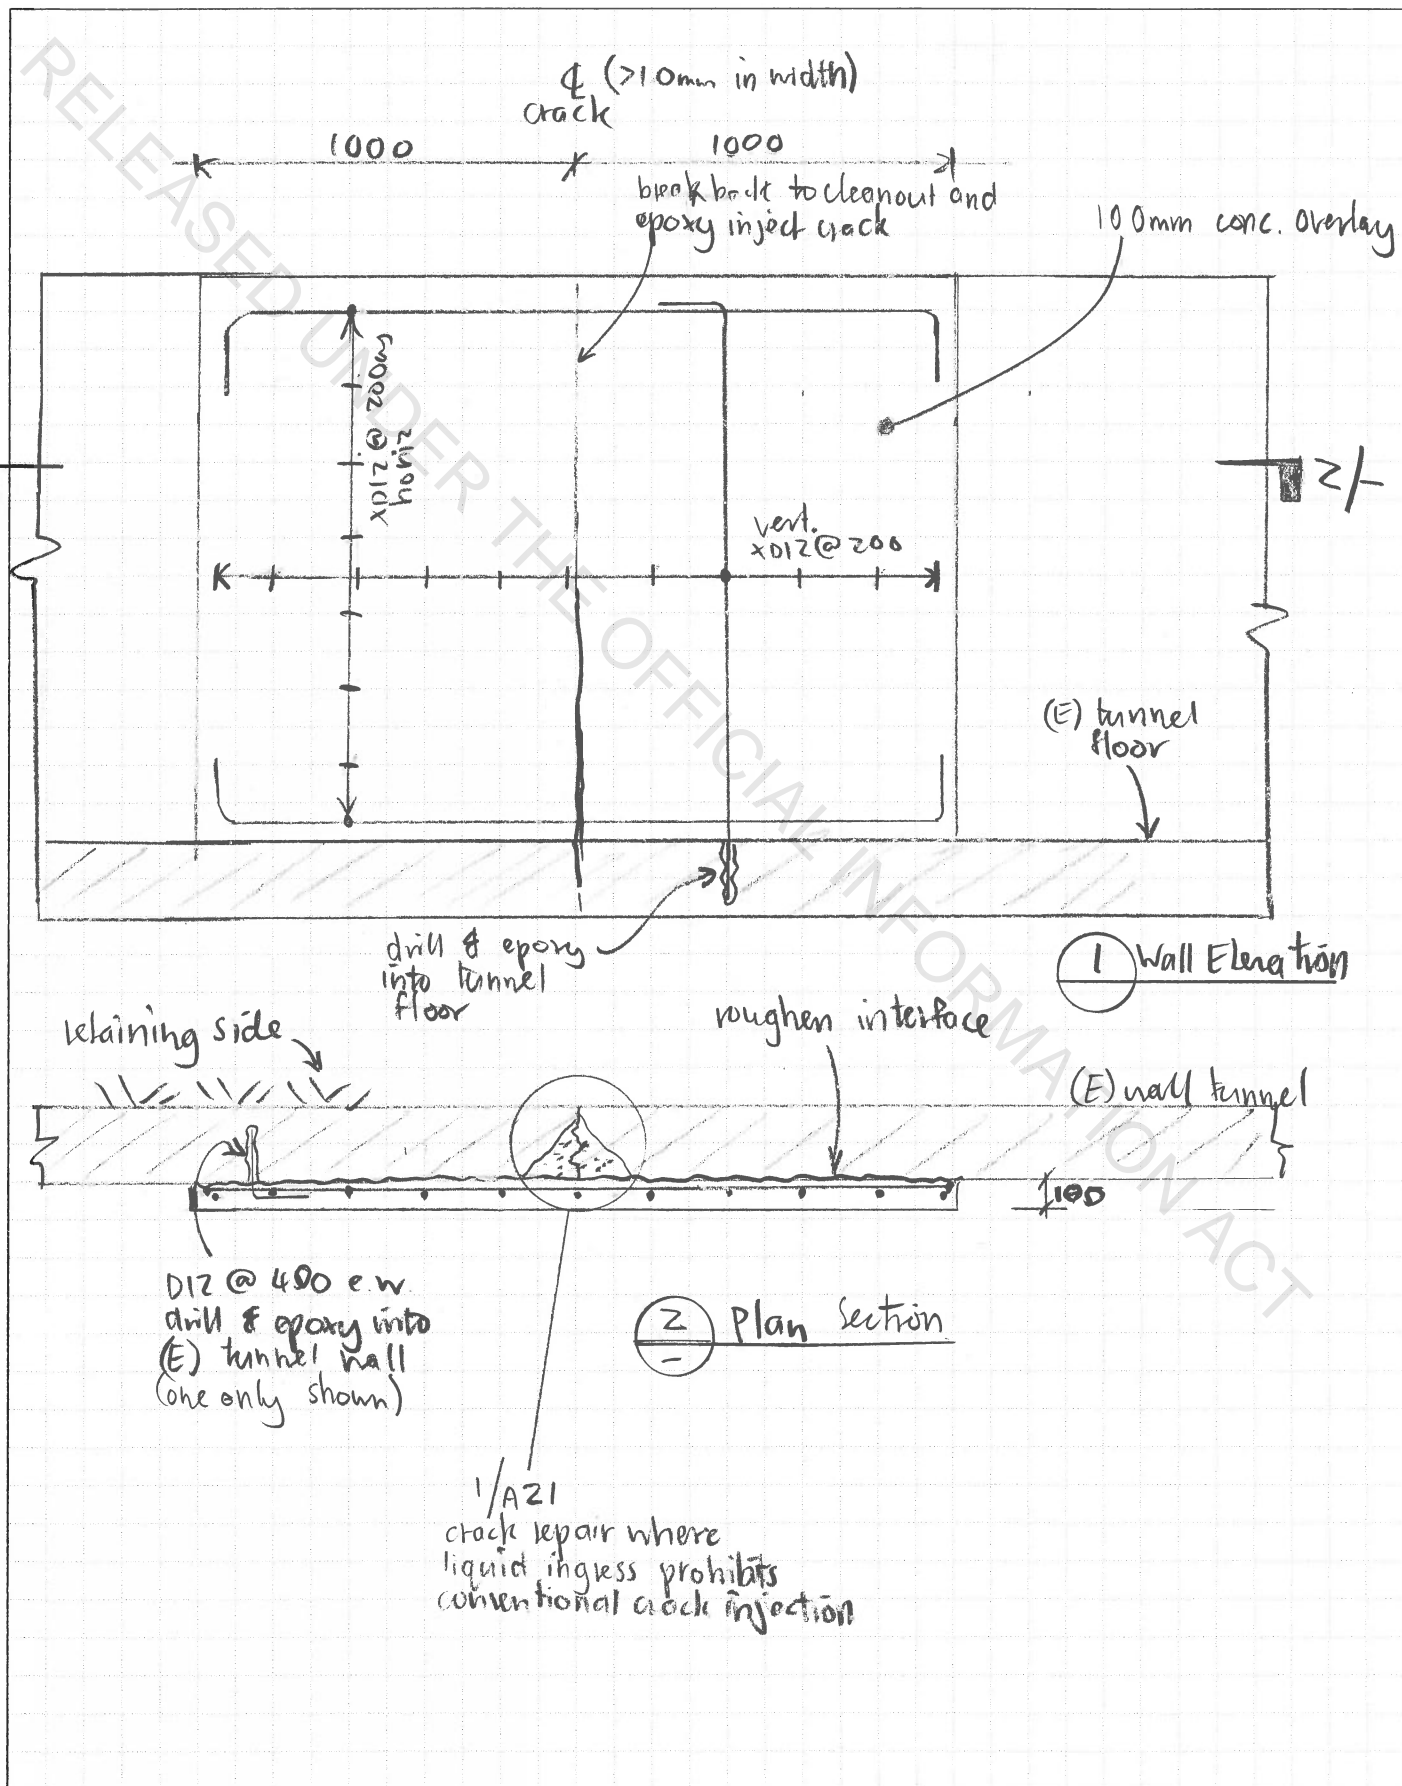 RELEASED UNDER THE OFFICIAL INFORMATION ACT
℄ (>10mm in width)
crack
1000
1000
break back to cleanout and
epoxy inject crack
100mm conc. overlay
XD12 @ 200crs
horiz
vert.
XD12 @ 200
2/-
(E) tunnel
floor
drill & epoxy
into tunnel
floor
1 Wall Elevation
retaining side
roughen interface
(E) wall tunnel
100
D12 @ 400 e.w.
drill & epoxy into
(E) tunnel wall
(one only shown)
2 Plan Section
-
1/A21
crack repair where
liquid ingress prohibits
conventional crack injection